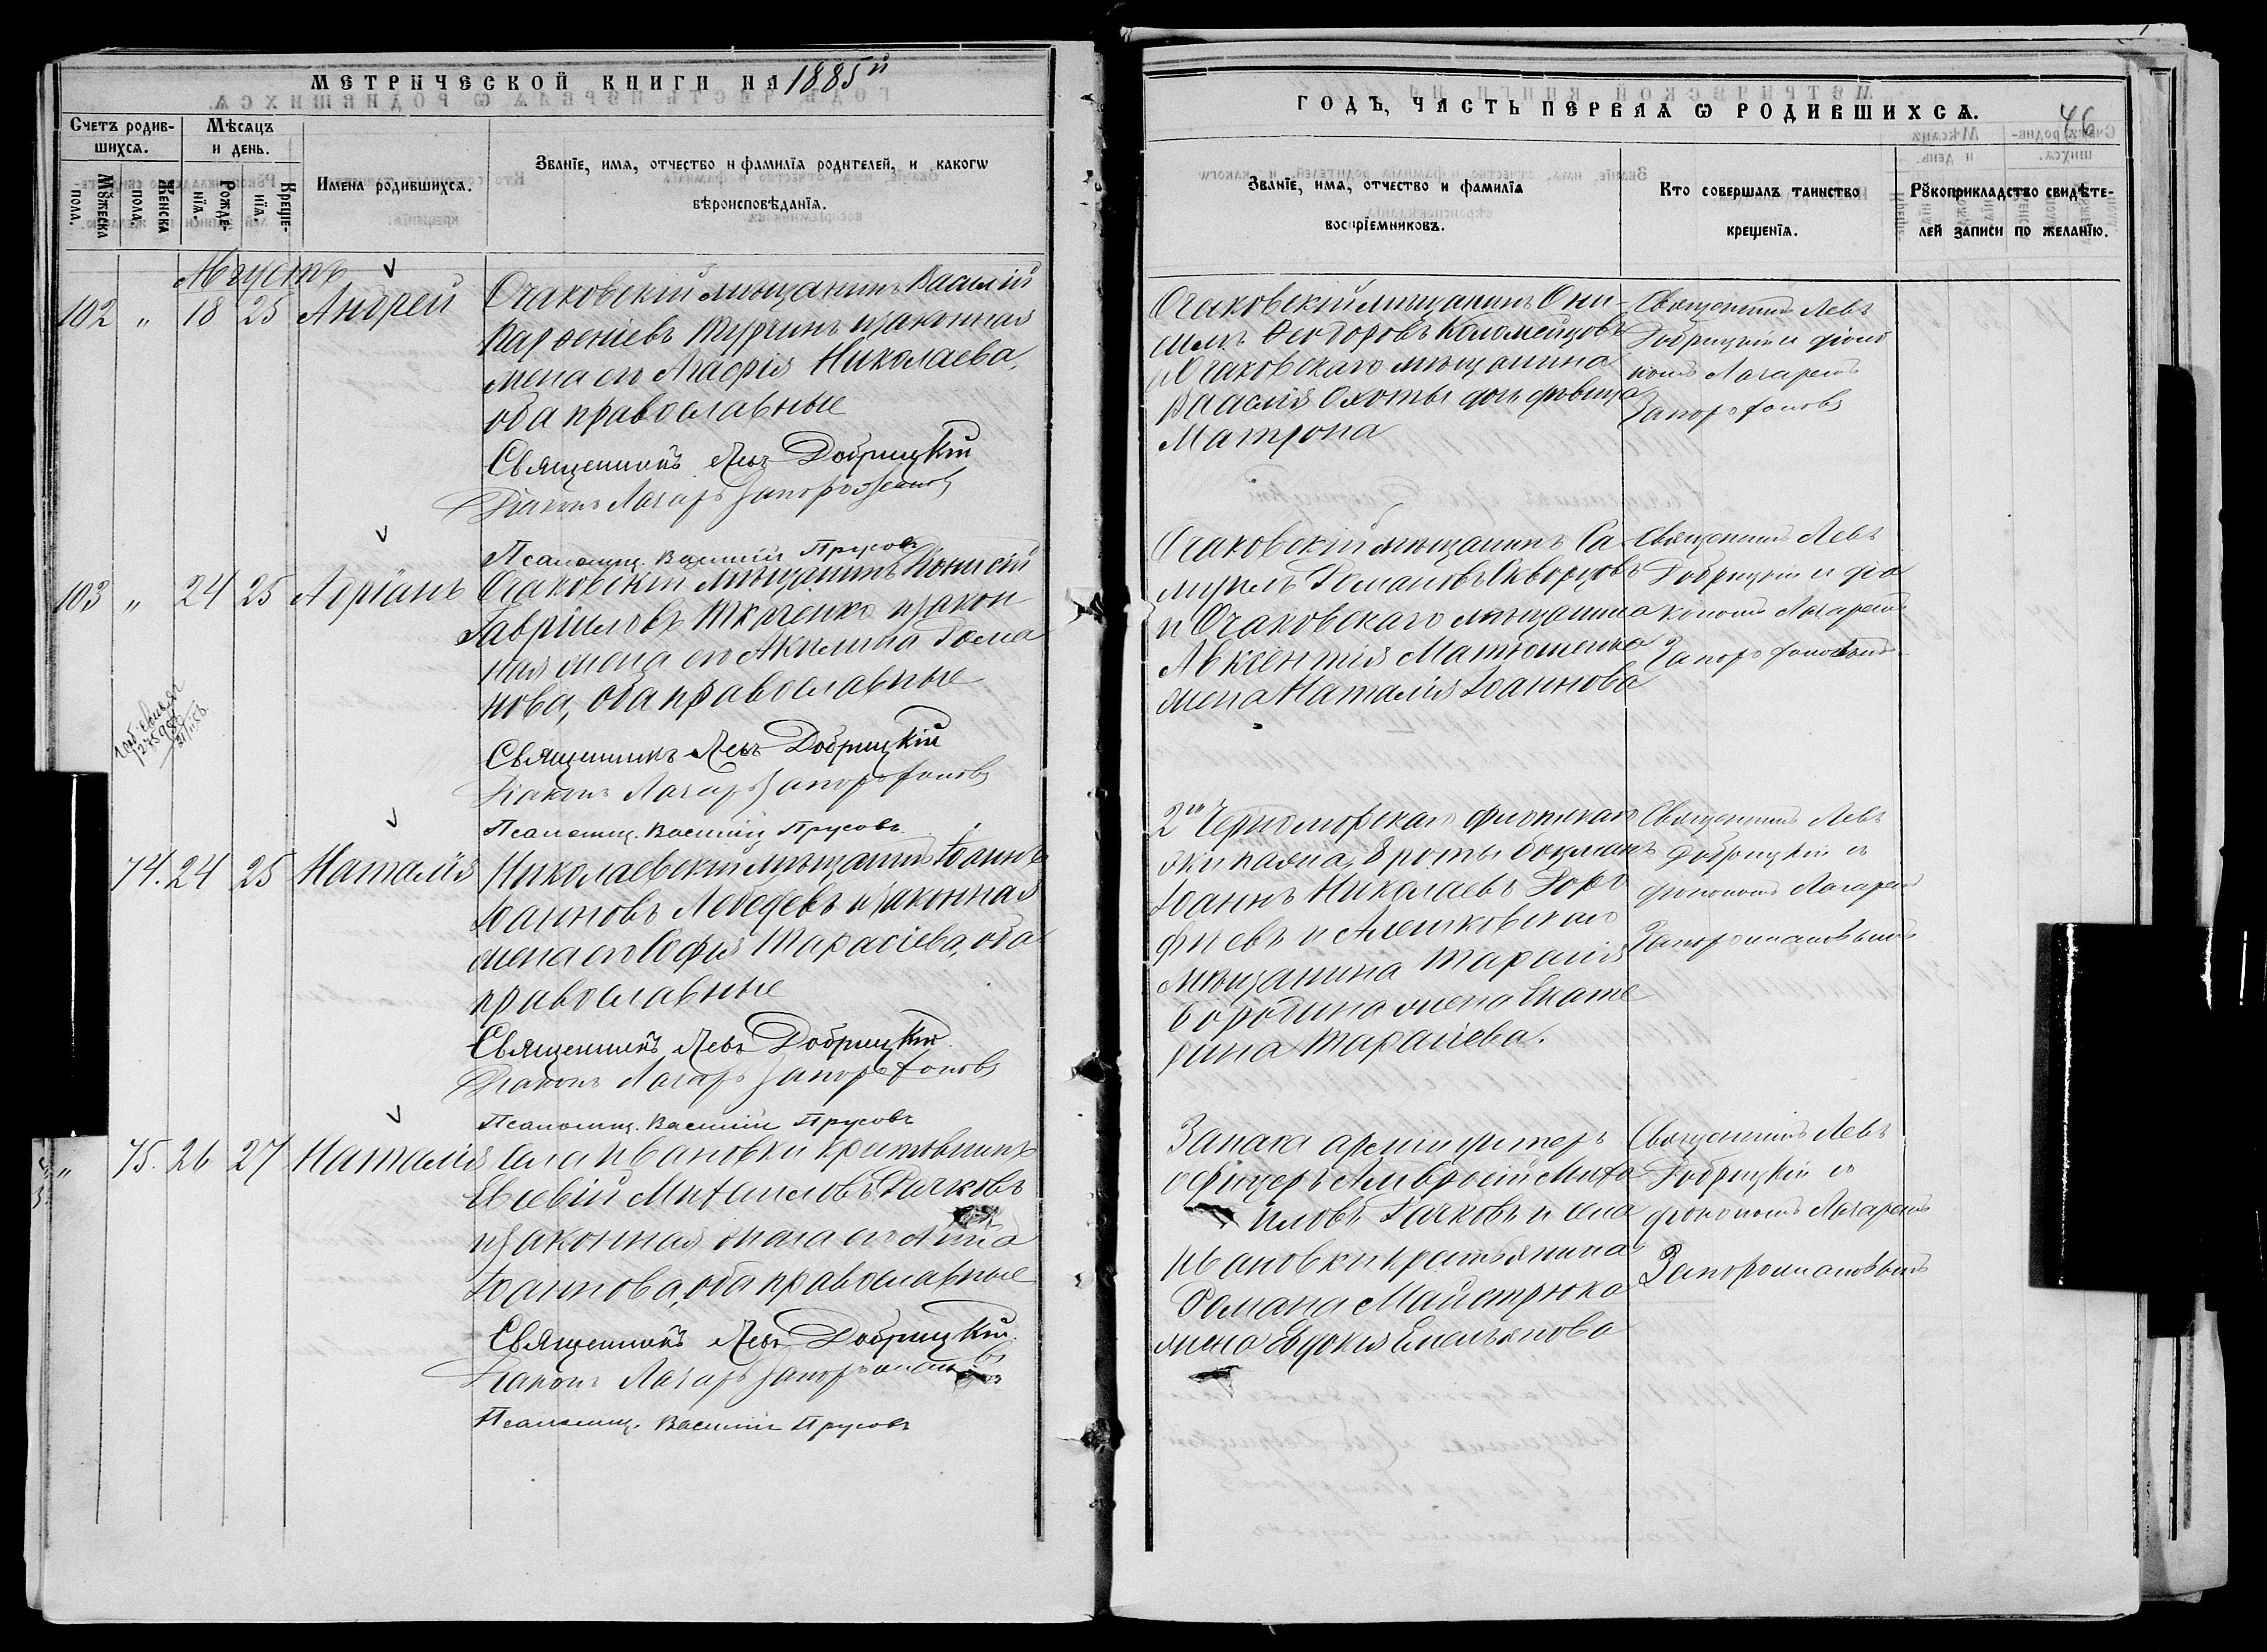 МЕТРИЧЕСКОЙ КНИГИ НА 1885й
Счетъ родив-
шихся.
Мѣсяцъ
и день.
Мꙋжеска
пола.
Женска
пола.
Рожде-
нїя.
Креще-
нїя.
Имена родившихся.
Званїе, имя, отчество и фамилїя родителей, и какогѡ
вѣроисповѣданїя.
Августъ
102 " 18 25 Андрей
Очаковскій мѣщанинъ Василій
Парѳеніевъ и законная
жена его Агафія Николаева,
оба православные
Священникъ Левъ Добрицкій
Діаконъ Лазарь Запорожановъ
Псаломщ. Василій Прусовъ
103 " 24 25 Адріанъ
Очаковскій мѣщанинъ
Гавріиловъ Ткаченко и закон
ная жена его Акилина Рома
нова, оба православные
Священникъ Левъ Добрицкій
Діаконъ Лазарь Запорожановъ
Псаломщ. Василій Прусовъ
74. 24 25 Наталія
Николаевскій мѣщанинъ Іоаннъ
Іоанновъ Лебедевъ и законная
жена его Софія Тарасіева, оба
православные
Священникъ Левъ Добрицкій
Діаконъ Лазарь Запорожановъ
Псаломщ. Василій Прусовъ
" 75. 26 27 Наталія
села Ивановки крестьянинъ
Евсевій Михаиловъ Рачковъ
и законная жена его Анна
Іоаннова, оба православные
Священникъ Левъ Добрицкій
Діаконъ Лазарь Запорожановъ
Псаломщ. Василій Прусовъ
ГОДЪ, ЧАСТЬ ПЕРВАЯ Ѡ РОДИВШИХСЯ.
46
Званїе, имя, отчество и фамилїя
воспрїемниковъ.
Кто совершалъ таинство
крещенїя.
Рꙋкоприкладство свидѣте-
лей записи по желанїю.
Очаковскій мѣщанинъ Они-
симъ Ѳеодоровъ Коломейцовъ
и Очаковскаго мѣщанина
Василія Охоты дочь дѣвица
Матрона
Священникъ Левъ
Добрицкій и діа
кономъ Лазаремъ
Очаковскій мѣщанинъ Са
муилъ Романовъ Скворцовъ
и Очаковскаго мѣщанина
Авксентія Матюшенка
жена Наталія Іоаннова
Священникъ Левъ
Добрицкій и діа
кономъ Лазаремъ
2го Черноморскаго флотскаго
экипажа, 8 роты боцманъ
Іоаннъ Николаевъ Доро
фѣевъ и Алешковскаго
мѣщанина Тарасія
Бородина жена Екате
рина Тарасіева.
Священникъ Левъ
Добрицкій и
діакономъ Лазаремъ
Запорожановымъ
Запаса арміи унтеръ
офицеръ Амвросій Миха
иловъ Рачковъ и села
Ивановки крестьянина
Романа Майстрюка
жена Евдокія Емельянова
Священникъ Левъ
Добрицкій и
діакономъ Лазаремъ
Запорожановымъ